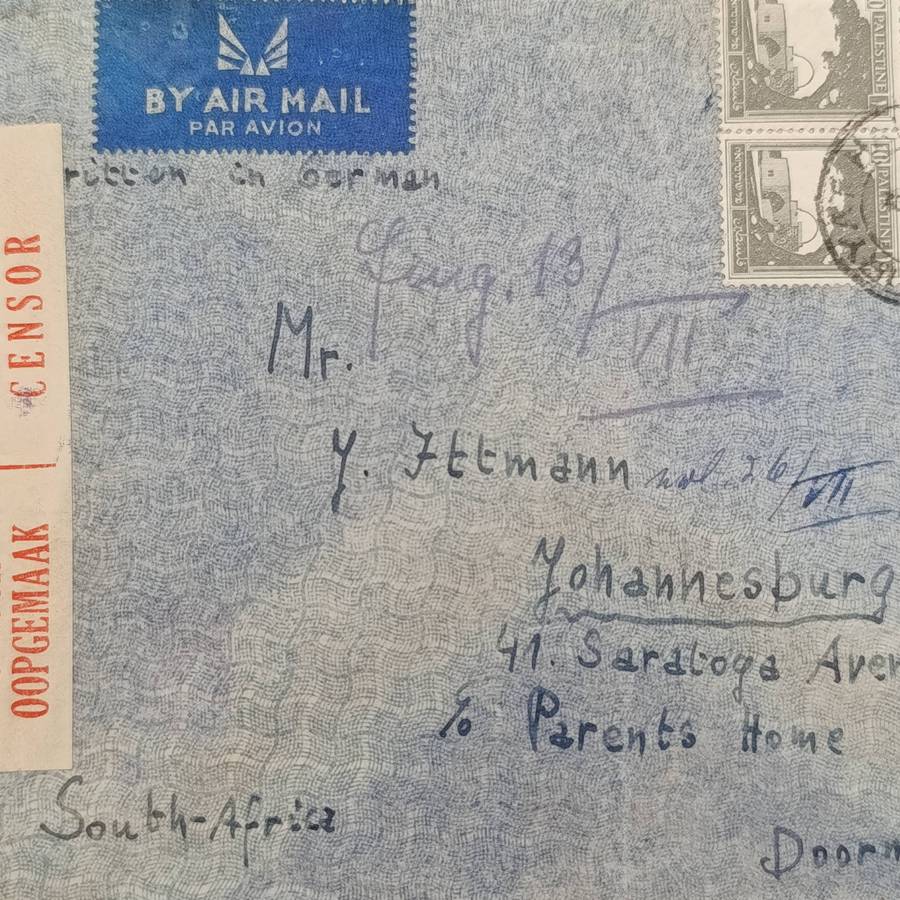 BY AIR MAIL
PAR AVION
PALESTINE
PALESTINE
ritten in German
CENSOR
OOPGEMAAK
Mr.
13/VII
Y. Ittmann 26/VII
Johannesburg
41. Saratoga Aven
c/o Parents Home
South-Africa
Doorn